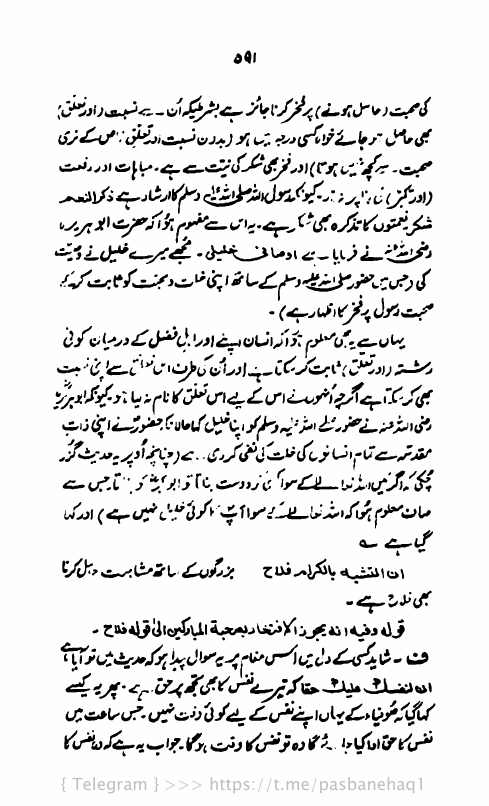 ۵۹۱
کی صحبت (حاصل ہونے) پر فخر کرنا جائز ہے بشرطیکہ اُن سے نسبت (اور تعلق)
بھی حاصل ہو جائے خواہ کسی درجہ میں ہو (بدون نسبت اور تعلق کے نری
صحبت سے کچھ نہیں ہوتا) اور فخر بھی شکر کی نیت سے ہے۔ مباہات اور رفعت
(اور تکبر) کی بنا پر نہ ہو۔ کیونکہ رسول اللہ صلی اللہ علیہ وسلم کا ارشاد ہے ذکر النعم
شکر نعمتوں کا تذکرہ بھی شکر ہے۔ یہ اس سے مفہوم ہوا کہ حضرت ابو ہریرہ
رضی اللہ عنہ نے فرمایا ہے اوصانی خلیلی۔ مجھے میرے خلیل نے وصیت
کی (جس میں حضور صلی اللہ علیہ وسلم کے ساتھ اپنی خلت و محبت کو ثابت کر کے
صحبت رسول پر فخر کا اظہار ہے)۔
یہاں سے یہ بھی معلوم ہوا کہ انسان اپنے اور اہل فضل کے درمیان کوئی
رشتہ (اور تعلق) ثابت کر سکتا ہے اور اُن کی طرف اس سے اپنی نسبت
بھی کر سکتا ہے اگرچہ اُنھوں نے اس کے لیے اس تعلق کا نام نہ لیا ہو۔ کیونکہ ابو ہریرہ
رضی اللہ عنہ نے حضور صلے اللہ علیہ وسلم کو اپنا خلیل کہا حالانکہ حضور نے اپنی ذات
مقدسہ سے تمام انسانوں کی خلت کی نفی کر دی ہے (چنانچہ اُوپر یہ حدیث گزر
چکی کہ اگر میں اللہ تعالےٰ کے سوا کسی کو دوست بناتا تو ابو بکر کو بناتا جس سے
صاف معلوم ہوا کہ اللہ تعالےٰ کے سوا آپ کا کوئی خلیل نہیں ہے) اور کہا
گیا ہے ؎
ان التشبه بالکرام فلاح بزرگوں کے ساتھ مشابہت حاصل کرنا
بھی فلاح ہے۔
قوله وفیه انه یجوز الافتخار بصحبة المبارکین الی قوله فلاح۔
ف۔ شاید کسی کے دل میں اس مقام پر یہ سوال پیدا ہو کہ حدیث میں تو آیا ہے
ان لنفسك عليك حقا کہ تیرے نفس کا بھی تجھ پر حق ہے۔ پھر یہ کیسے
کہا گیا کہ صوفیاء کے یہاں اپنے نفس کے لیے کوئی وقت نہیں۔ جس ساعت میں
نفس کا حق ادا کیا جائے گا وہ تو نفس کا وقت ہوگا۔ جواب یہ ہے کہ نفس کا
{ Telegram } >>> https://t.me/pasbanehaq1